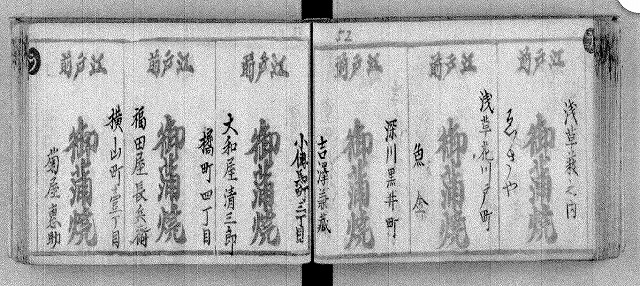 52
江戸前
浅草
御蒲焼
江戸前
浅草花川戸町
御蒲焼
魚金
江戸前
深川黒井町
御蒲焼
吉澤
小傳馬町三丁目
江戸前
御蒲焼
大和屋清三郎
橘町四丁目
江戸前
御蒲焼
福田屋長兵衛
横山町壹丁目
江戸前
御蒲焼
菊屋恵助